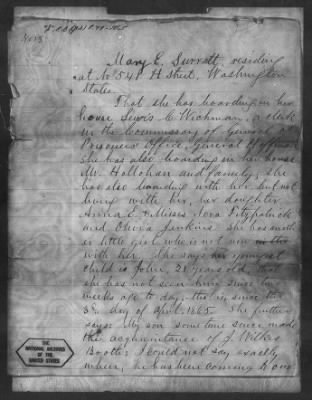 Mary E. Surratt, residing
at No 541 H Street, Washington
States.
That she has boarding in her
house Lewis C Wichman, a clerk
in the Commissary of General of
Prisoners Office, General Hoffman
She has also boarding in her house
Mr. Hallohan and family, she
has also boarding with her, but not
living with her, her daughter
Anna E. Misses Nora Fitzpatrick
and Olivia Jenkins. She has another
a little girl who is not now
with her. She says her youngest
child is John, 21 years old, that
she has not seen him since two
weeks ago to day; that is, since the
3rd day of April 1865. She further
says: My son some time since made
the acquaintance of J. Wilkes
Booth; I could not say exactly
when; he has been coming to our
THE
NATIONAL ARCHIVES
OF THE
UNITED STATES